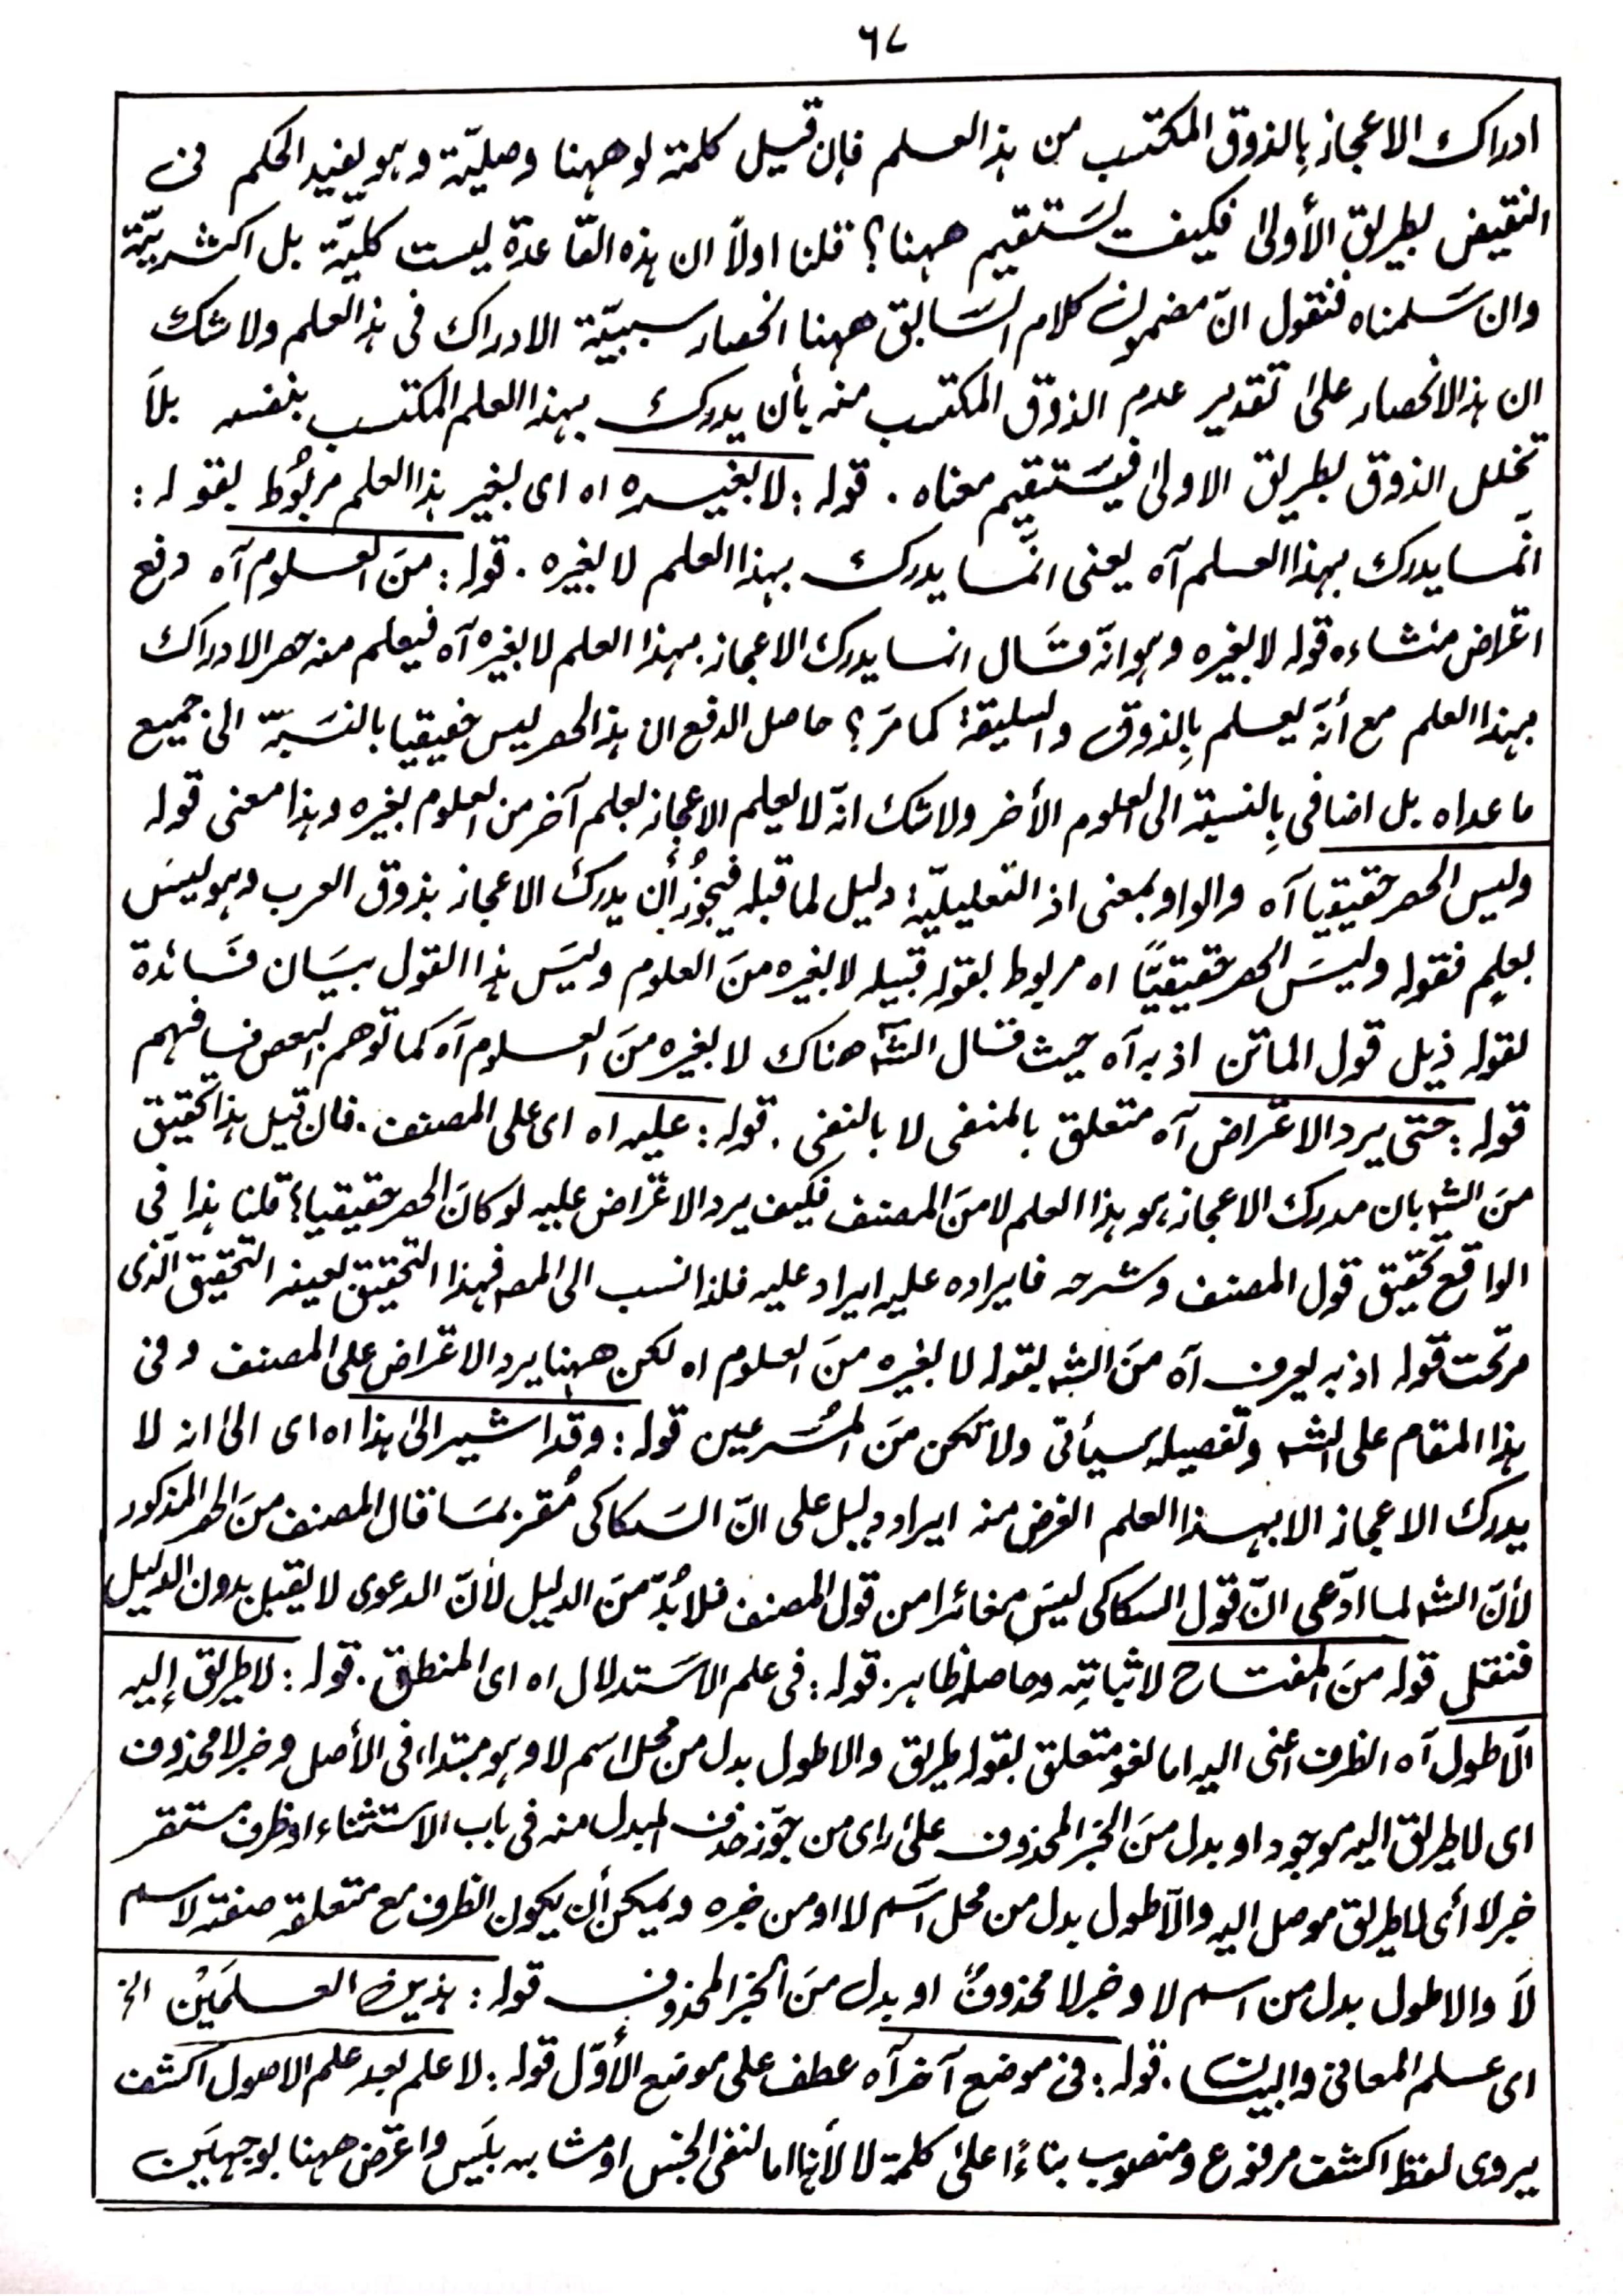 ٦٧
ادراك الاعجاز بِالذوق المكتسب من هذا العلم فإن قيل كلمة لو ههنا وصليّة وهو يفيد الحكم فى
النقيض بطريق الأولىٰ فكيف يَستقيم ههنا؟ قلنا اولاً ان هذه القاعدة ليست كليّة بل اكثريّة
وان سَلمناه فنقول انّ مضمون كلام السَابق ههنا انحصار سببيّة الادراك فى هذا العلم ولا شك
ان هذا الانحصار علىٰ تقدير عدم الذوق المكتسب منه بأن يدرك بهذا العلم المكتسب بنفسه بلاَ
تخلل الذوق بطريق الاولىٰ فيَستقيم معناه . قوله : لا بغيره اه اى بغير هذا العلم مربُوط بقوله :
انّما يدرك بهذا العلم آه يعنى انّما يدرك بهذا العلم لا بغيره . قوله : منَ العلوم آه دفع
اعتراض منشاءه قوله لا بغيره وهو انّه قَال انما يدرك الاعجاز بهذا العلم لا بغيره آه فيعلم منه حصر الادراك
بهذا العلم مع أنّه يعلم بِالذوق والسليقة كما مرَ؟ حاصل الدفع ان هذا الحصر ليس حقيقيا بالنسَبة الىٰ جميع
ما عداه بل اضافى بِالنسبة الى العلوم الأخر ولا شك انّه لا يعلم الاعجاز بعلم آخر من العلوم بغيره وهذا معنى قوله
وليس الحصر حقيقيا آه والواو بمعنى اذ التعليليّة دليل لما قبله فيجوُز أن يدرك الاعجاز بذوق العرب وهو ليسَ
بعلمٍ فقوله وليسَ الحصر حقيقيًّا اه مربوط بقوله قبيله لا بغيره منَ العلوم وليسَ هذا القول ببيَان فَائدة
لقوله ذيل قول الماتن اذ به آه حيث قال الشہ هناك لا بغيره منَ العلوم آه كما توهم البعض فافهم
قوله : حتى يرد الاعتراض آه متعلق بالمنفى لا بالنفى . قوله : عليه اه اى على المصنف . فان قيل هذا تحقيق
منَ الشہ بان مدرك الاعجاز هو هذا العلم لا منَ المصنف فكيف يرد الاعتراض عليه لو كانَ الحصر حقيقيا؟ قلنا هذا فى
الواقع تحقيق قول المصنف وشرحه فايراده عليه ايراد عليه فلذا نسب الى المصـ فهذا التحقيق بعينه التحقيق الّذى
مر تحت قوله اذ به يعرف آه منَ الشہ بقوله لا بغيره منَ العلوم اه لكن ههنا يرد الاعتراض على المصنف وفى
هذا المقام على الشہ وتفصيله سيأتى ولا تكن منَ المُسَرعين قوله : وقد اشير الىٰ هذا اه اى الىٰ انه لا
يدرك الاعجاز الا بهذا العلم الغرض منه ايراد دليل على انّ السَكاكى مُقر بمَا قال المصنف منَ الحصر المذكور
لأنّ الشہ لما ادّعى انّ قول السكاكى ليسَ مغائرا من قول المصنف فلا بُدّ منَ الدليل لأنّ الدعوى لا يقبل بدون الدليل
فنقل قوله منَ المفتاح لاثباتِه وحاصله ظاهر . قوله : فى علم الاسَتدلال اه اى المنطق . قوله : لا طريق إليه
الّا طول آه الظرف اعنى اليه اما لغو متعلق بقوله طريق والا طول بدل من محل اسم لا وهو مبتداء فى الأصل وخبر لا محذوف
اى لا طريق اليه موجود او بدل منَ الخبر المحذوف علىٰ راى من جوّز حذف المبدل منه فى باب الاستثناء او ظرف مستقر
خبر لا أى لا طريق موصل اليه والّا طول بدل من محل اسَم لا او من خبره ويمكن أن يكون الظرف مع متعلقه صفة لاسم
لاَ والا طول بدل من اسم لا وخبر لا محذوفٌ او بدل منَ الخبر المحذوف قوله : هذين العلمَيْن الخ
اى علم المعانى والبيان . قوله : فى موضع آخر آه عطف على موضع الأوّل قوله : لا علم بعد علم الاصول اكشف
يروى لفظ اكشف مرفوع ومنصوب بناءً علىٰ كلمة لا لأنها اما لنفى الجنس او مشابه بليَس واعترض ههنا بوجهيَن